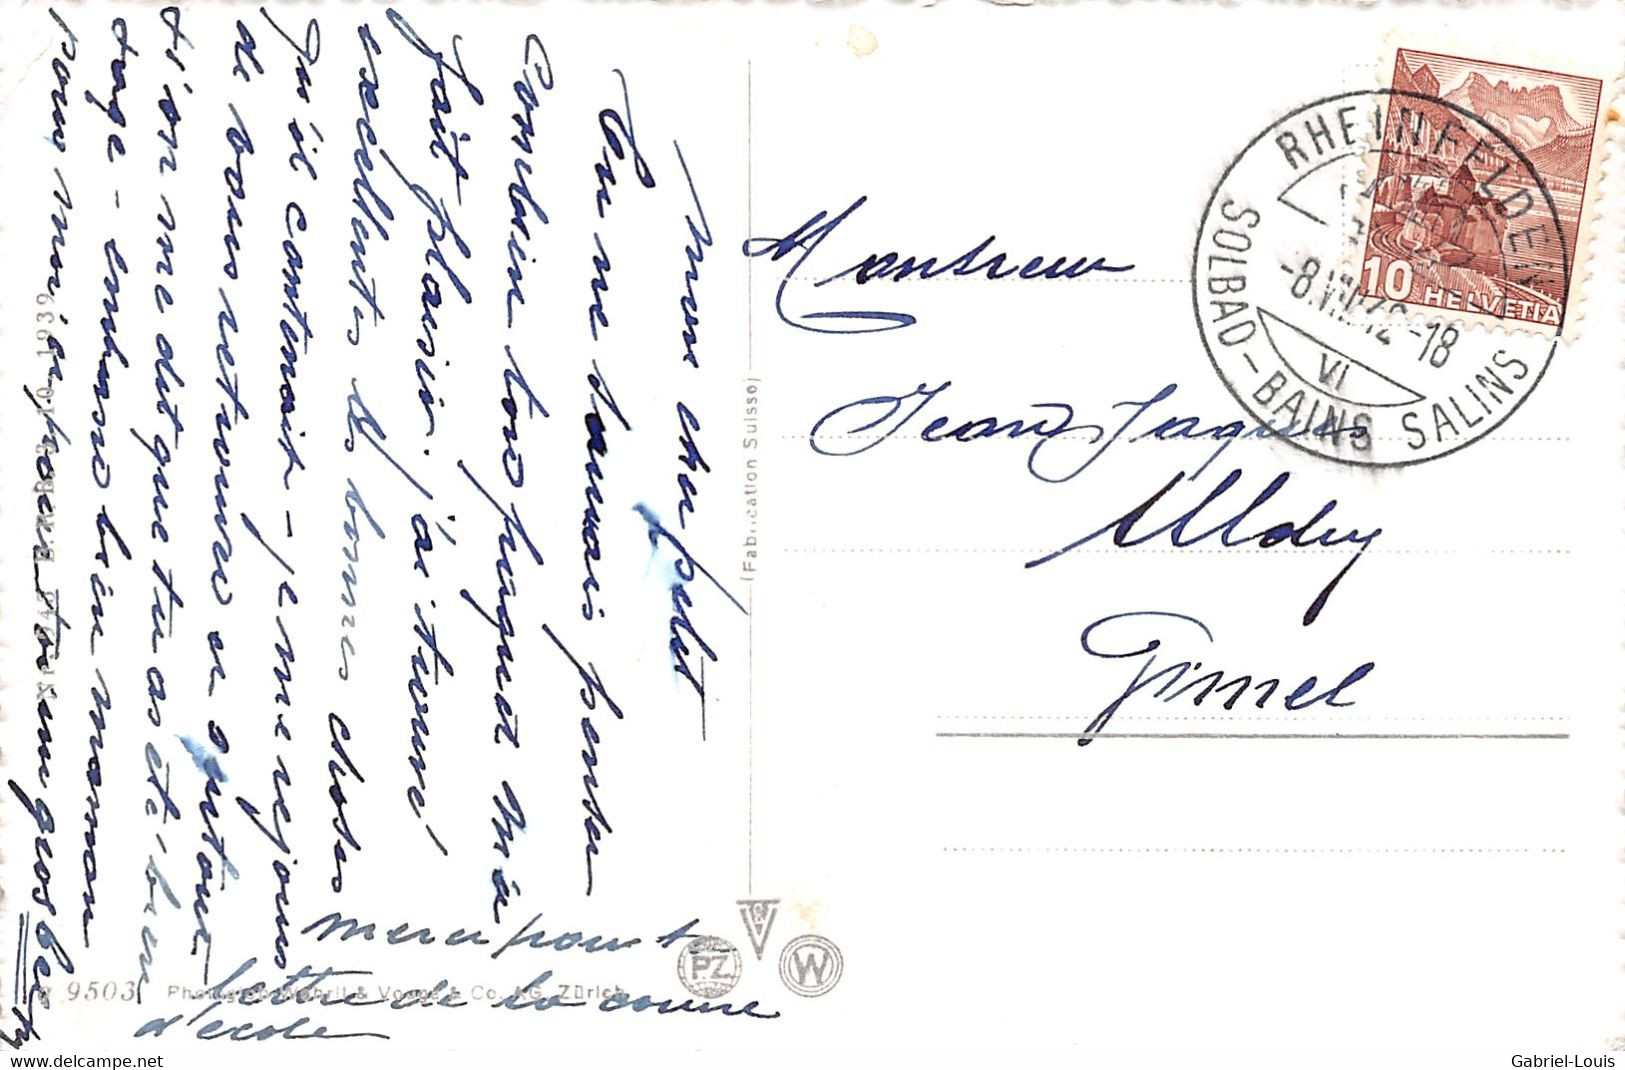 mon cher petit
Tu ne saurais penser
Combien ton paquet m'a
fait plaisir. j'ai trouvé
excellents les bonnes choses
qu'il contenait - je me rejouis
de vous retrouver en automne
d'on me dit que tu as été bien
sage - embrasse bien maman
pour moi, et pour toi un gros bec
merci pour ta
lettre de la course
d'école
Monsieur
Jean Jaques
Gimel
RHEINFELDEN
-8.VIII.42-18
VI
SOLBAD-BAINS SALINS
10 HELVETIA
(Fabrication Suisse)
10.1939
9503 Photoglob-Wehrli & Vouga & Co. AG. Zürich
P.Z.
W
https://www.delcampe.net
Gabriel-Louis